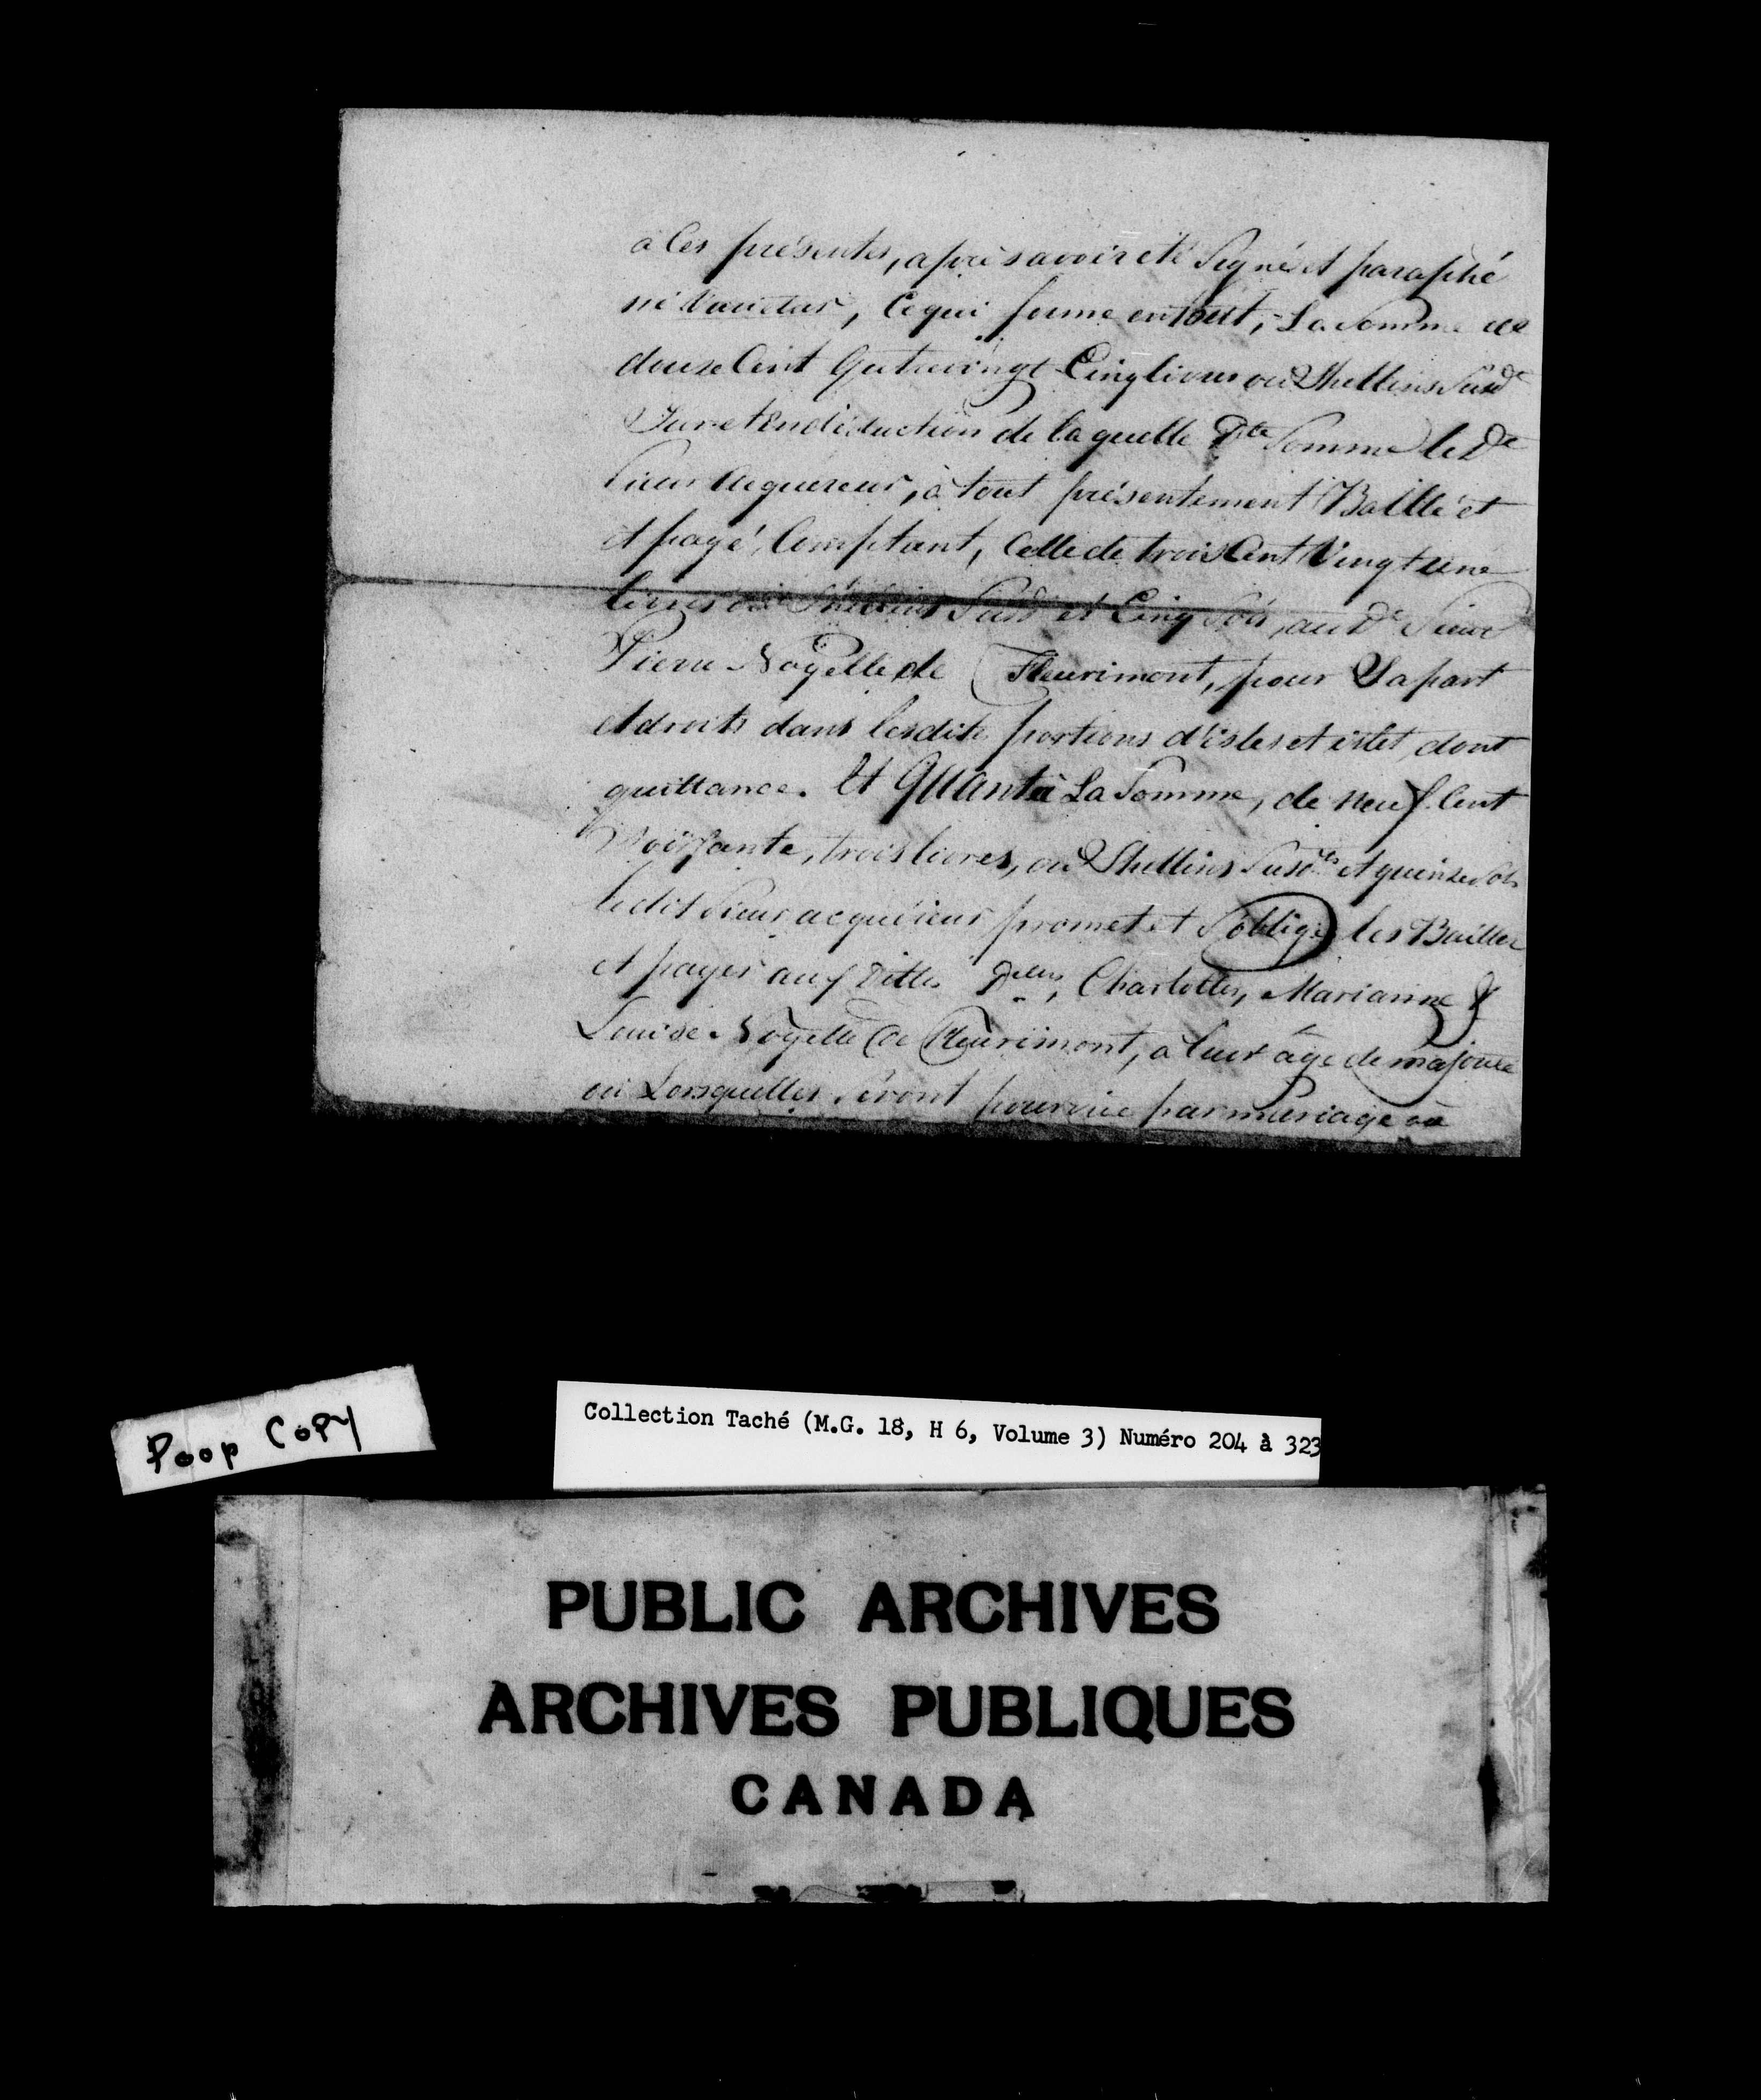 à Ces présentes, après avoir eté Signé et paraphé
ne varietur, Ce qui forme en tout, La Somme de
douze Cent Quatrevingt Cinq livres ou Shellins Susd
Sur et En déduction de laquelle Dte Somme le Dt
Sieur Acquereur, à tout présentement Baillé et
et payé Comptant, Celle de trois Cent Vingt une
livres ou Shellins Susd et Cinq Sols, au Dt Sieur
Pierre Noyelle de Fleurimont, pour Sa part
et droits dans lesdite portions d'isles et islet, dont
quittance. Et Quant à La Somme, de neuf Cent
Soissante, trois livres, ou Shellins Susdts et quinze Sols
ledit Sieur acquéreur promet et S'oblige les Bailler
et payer aux dittes Delles, Charlotte, Marianne &
Louise Noyelle de Fleurimont, à leur âge de majorité
ou Lorsquelles Seront pourvue par mariage ou
Poor Copy
Collection Taché (M.G. 18, H 6, Volume 3) Numéro 204 à 323
PUBLIC ARCHIVES
ARCHIVES PUBLIQUES
CANADA